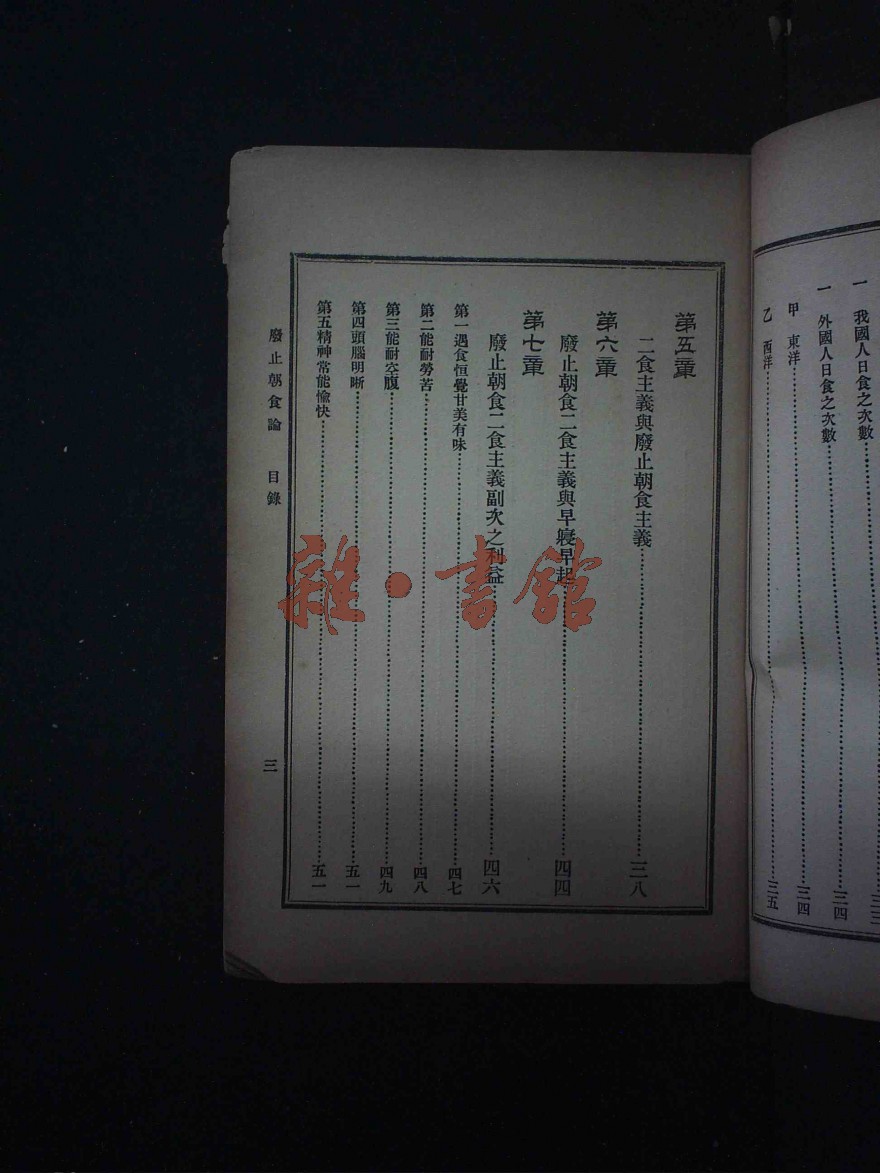 一 我國人日食之次數……三三
一 外國人日食之次數……三四
甲 東洋……三四
乙 西洋……三五
第五章
二食主義與廢止朝食主義……三八
第六章
廢止朝食二食主義與早寢早起……四四
第七章
廢止朝食二食主義副次之利益……四六
第一遇食恒覺甘美有味……四七
第二能耐勞苦……四八
第三能耐空腹……四九
第四頭腦明晰……五一
第五精神常能愉快……五一
廢止朝食論 目錄 三
雜·書館